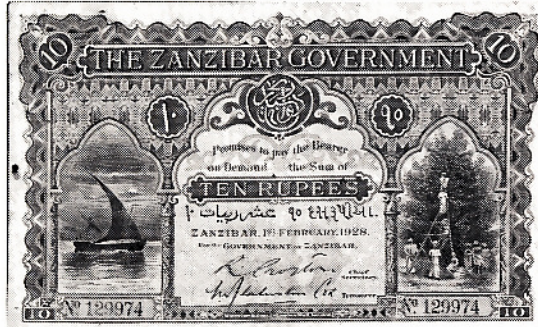 10 10
THE ZANZIBAR GOVERNMENT
١٠ ૧૦
Promises to pay the Bearer
on Demand the Sum of
TEN RUPEES
١٠ عشر ربيات ૧૦
ZANZIBAR, 1ST FEBRUARY, 1928.
For the GOVERNMENT OF ZANZIBAR.
Chief
Secretary.
Treasurer
10 Nº 129974 Nº 129974 10